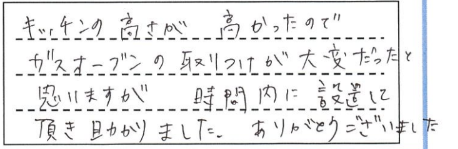 キッチンの高さが 高かったので
ガスオーブンの取りつけが大変だったと
思いますが 時間内に設置して
頂き助かりました。ありがとうございました